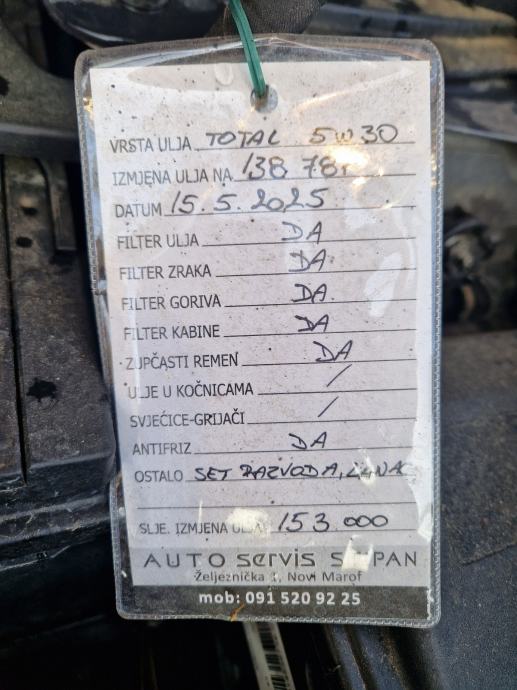 VRSTA ULJA TOTAL 5W30
IZMJENA ULJA NA 138 78
DATUM 15.5.2025
FILTER ULJA DA
FILTER ZRAKA DA
FILTER GORIVA DA
FILTER KABINE DA
ZUPČASTI REMEN DA
ULJE U KOČNICAMA /
SVJEĆICE-GRIJAČI /
ANTIFRIZ DA
OSTALO SET RAZVODA, LANAC
SLJE. IZMJENA ULJA 153.000
AUTO servis STJEPAN
Željeznička 1, Novi Marof
mob: 091 520 92 25